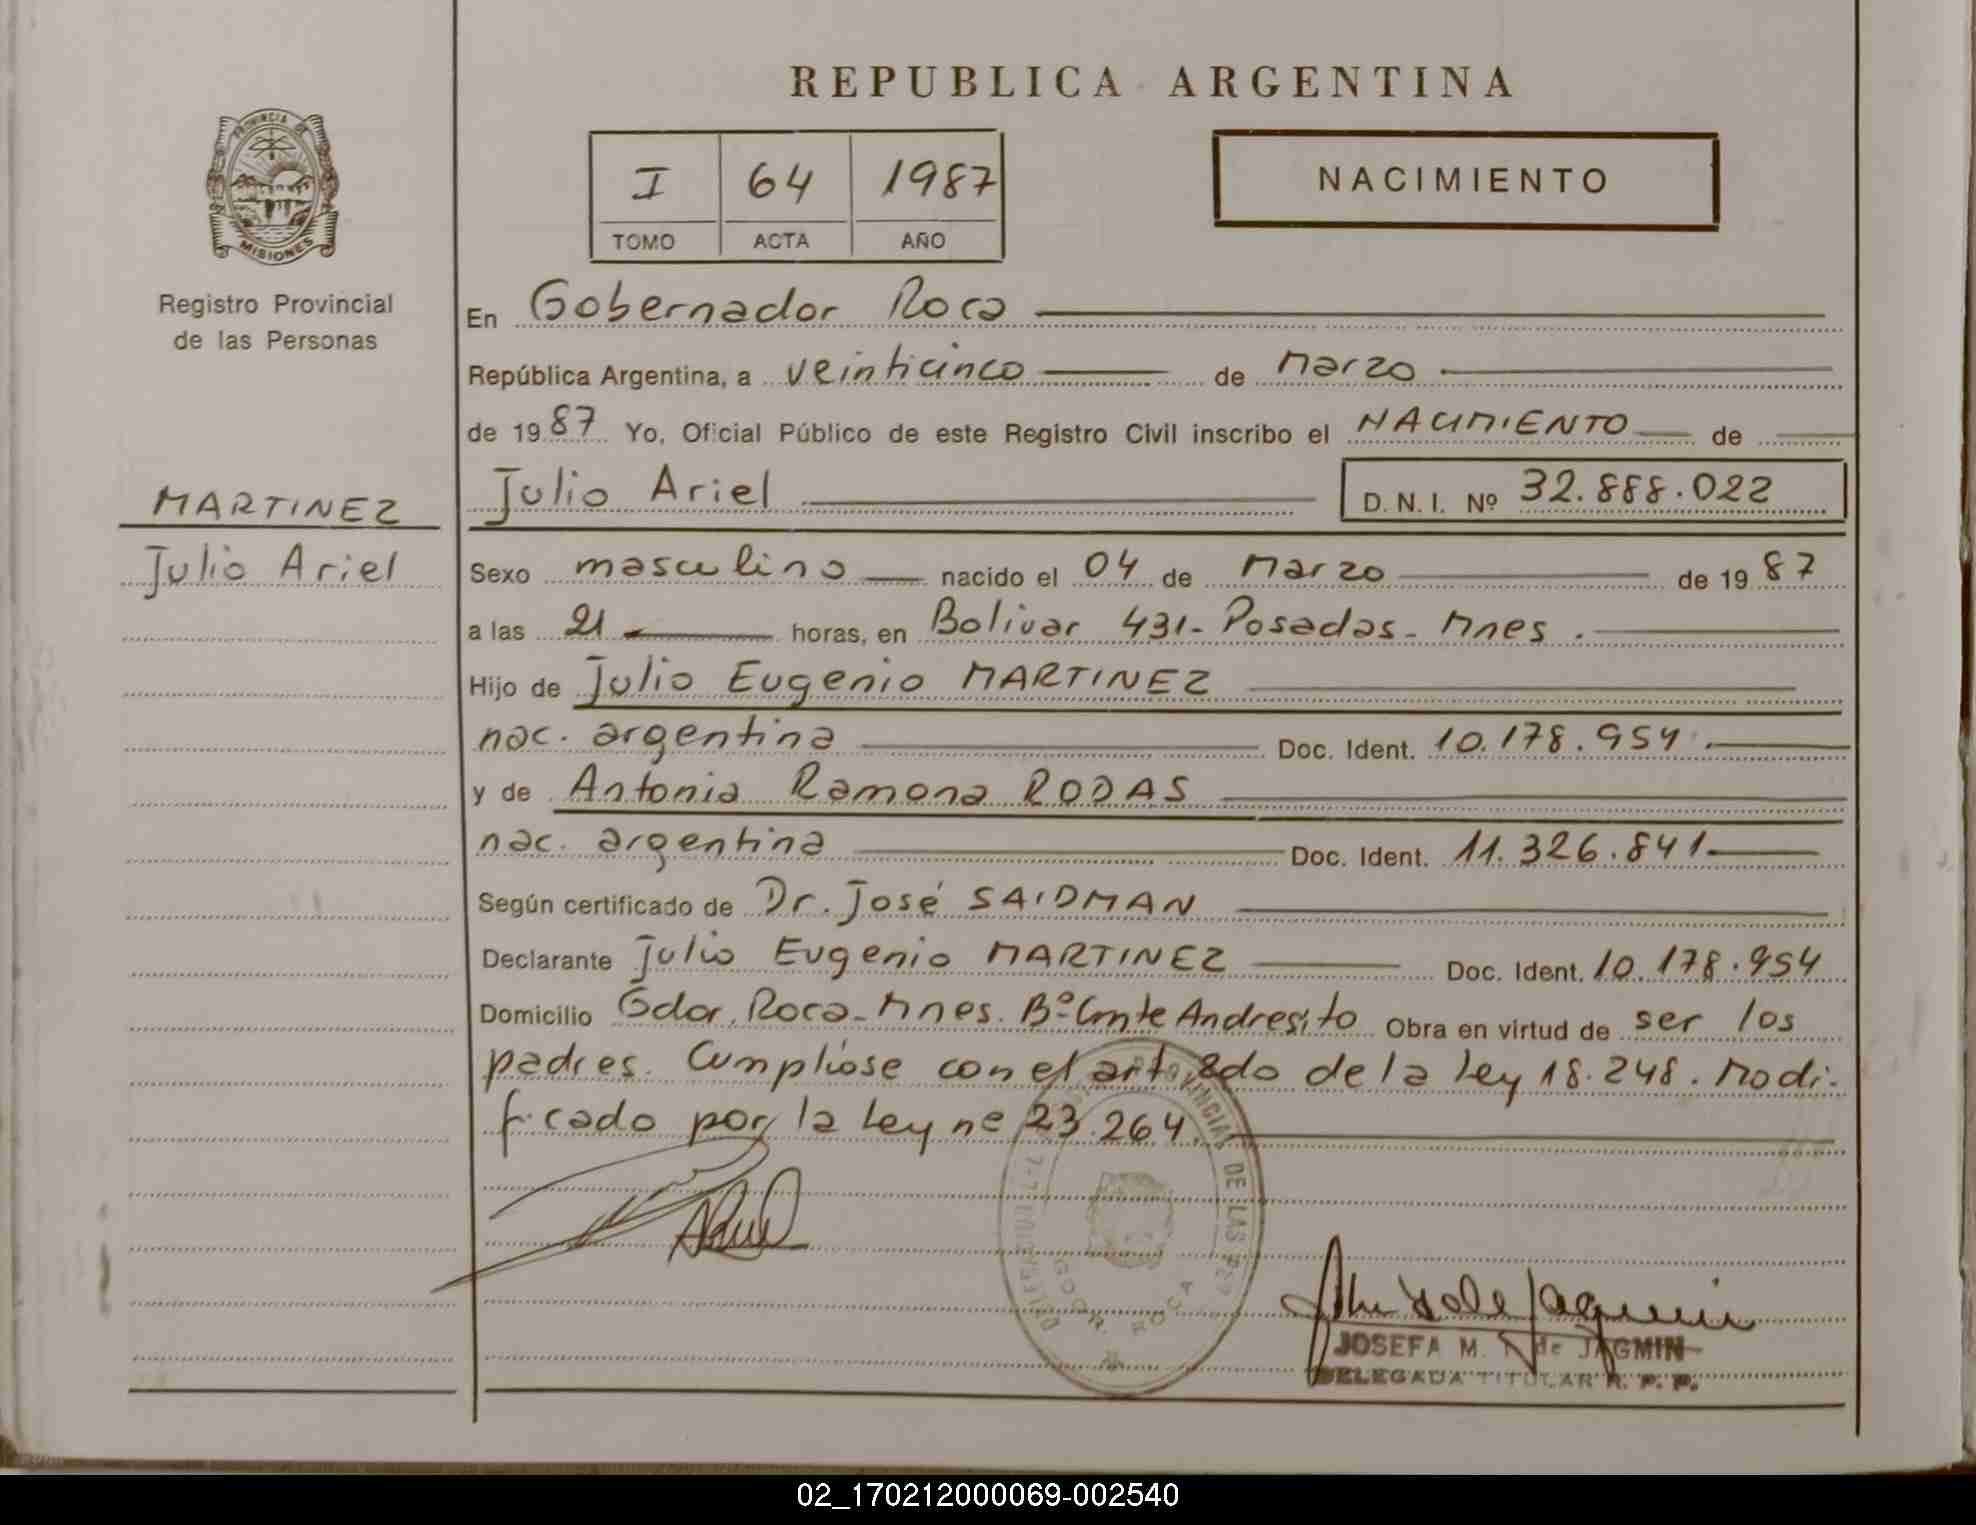 REPUBLICA ARGENTINA
PROVINCIA DE
MISIONES
Registro Provincial
de las Personas
I 64 1987
TOMO ACTA AÑO
NACIMIENTO
En Gobernador Roca
República Argentina, a veinticinco de Marzo
de 1987 Yo, Oficial Público de este Registro Civil inscribo el NACIMIENTO de
MARTINEZ
Julio Ariel
Julio Ariel D. N. I. Nº 32.888.022
Sexo masculino nacido el 04 de Marzo de 1987
a las 21 horas, en Bolivar 431- Posadas- Mnes.
Hijo de Julio Eugenio MARTINEZ
nac. argentina Doc. Ident. 10.178.954
y de Antonia Ramona RODAS
nac. argentina Doc. Ident. 11.326.841
Según certificado de Dr. José SAIDMAN
Declarante Julio Eugenio MARTINEZ Doc. Ident. 10.178.954
Domicilio Gdor. Roca- Mnes. Bº Cmte Andresito Obra en virtud de ser los
padres. Cumpliose con el art 2do de la Ley 18.248. Modi-
ficado por la Ley nº 23.264.
PROVINCIAL DE LAS
GDOR. ROCA
JOSEFA M. de JAGMIN
DELEGADA TITULAR R. P. P.
02_170212000069-002540